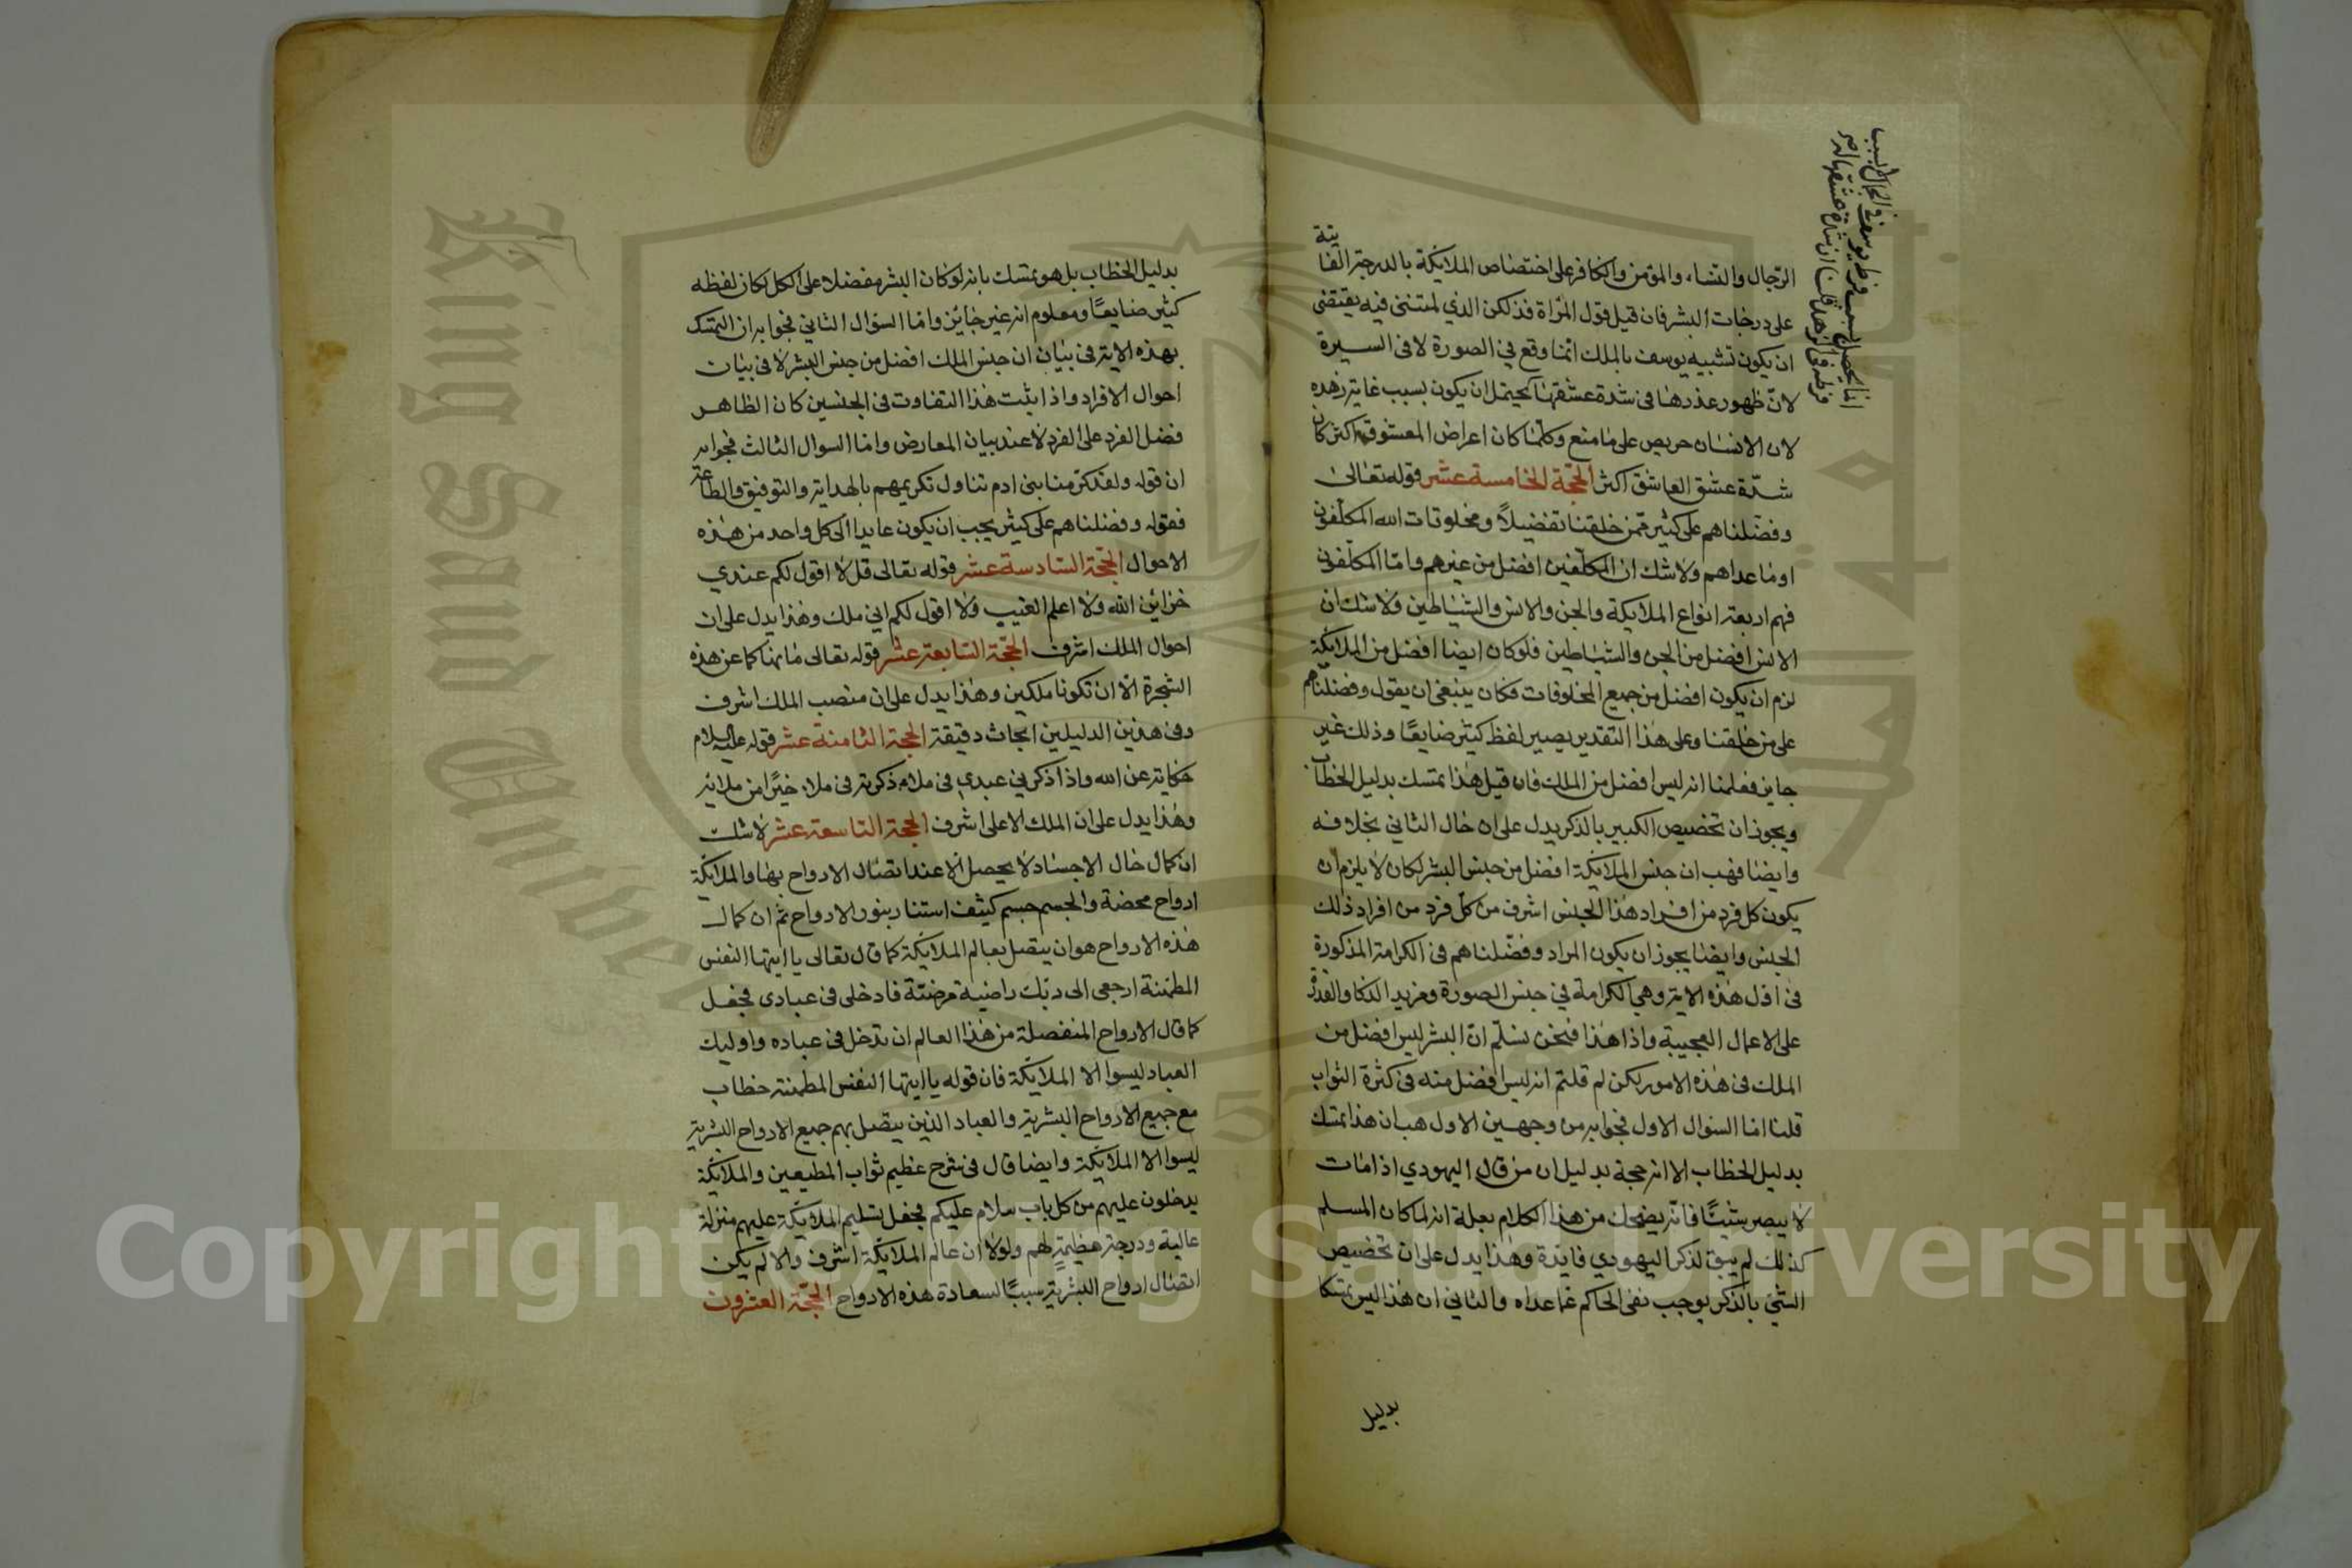 الرّجال والنسا، والمؤمن والكافر على اختصاص الملايكة بالدرجة الفا
يتة
على درجات البشر فان قيل قول المرّاة فذلكن الذي لمتنني فيه يقتضي
ان يكون تشبيه يوسف بالملك انما وقع في الصورة لا في السيرة
لانّ ظهور عذرها في شدة عشقها يحتمل ان يكون بسبب غاية زهده
لان الانسان حريص على ما منع وكلما كان اعراض المعشوق اكثر كان
شدّة عشق العاشق اكثر الحجّة الخامسة عشر قوله تعالى
وفضّلناهم على كثير ممّن خلقنا تفضيلاً ومخلوقات الله المكلّفون
او ما عداهم ولا شك ان المكلّفين افضل من غيرهم وامّا المكلّفون
فهم اربعة انواع الملايكة والجن والانس والشياطين ولا شك ان
الانس افضل من الجن والشياطين فلو كان ايضا افضل من الملايكة
لزم ان يكون افضل من جميع المخلوقات فكان ينبغي ان يقول وفضلناهم
على من خلقنا وعلى هذا التقدير يصير لفظ كثير ضايعًا وذلك غير
جايز فعلمنا انه ليس افضل من الملك فان قيل هذا تمسك بدليل الخطاب
ويجوز ان تخصيص الكبير بالذكر يدل على ان حال الثاني بخلافه
وايضا فهب ان جنس الملايكة افضل من جنس البشر لكان لا يلزم ان
يكون كل فرد من افراد هذا الجنس اشرف من كلّ فرد من افراد ذلك
الجنس وايضا يجوز ان يكون المراد وفضّلناهم في الكرامة المذكورة
في اول هذه الاية وهي الكرامة في جنس الصورة ومزيد الذكا والقدرة
على الاعمال العجيبة واذا هذا فنحن نسلّم انّ البشر ليس افضل من
الملك في هذه الامور لكن لم قلتم انه ليس افضل منه في كثرة الثواب
قلنا اما السؤال الاول فجوابه من وجهين الاول هب ان هذا تمسك
بدليل الخطاب الا انه حجة بدليل ان من قال اليهودي اذا مات
لا يبصر شيئًا فانّه يضحك من هذا الكلام بعلة انه لما كان المسلم
كذلك لم يبق لذكر اليهودي فايدة وهذا يدل على ان تخصيص
الشيّ بالذكر يوجب نفي الحاكم عما عداه والثاني ان هذا ليس تمسّكا
بدليل
بدليل الخطاب بل هو تمسك بانه لو كان البشر مفضلا على الكل لكان لفظه
كثير ضايعًا ومعلوم انه غير جايز وامّا السؤال الثاني فجوابه ان التمسك
بهذه الاية في بيان ان جنس الملك افضل من جنس البشر لا في بيان
احوال الافراد واذا ثبت هذا التفاوت في الجنسين كان الظاهر
فضل الفرد على الفرد لا عند بيان المعارض واما السوال الثالث فجوابه
ان قوله ولقد كرّمنا بني ادم تناول تكريمهم بالهداية والتوفيق والطاعة
فقوله وفضلناهم على كثير يجب ان يكون عايدا الى كل واحد من هذه
الاحوال الحجّة السّادسة عشر قوله تعالى قل لا اقول لكم عندي
خزائن الله ولا اعلم الغيب ولا اقول لكم اني ملك وهذا يدل على ان
احوال الملك اشرف الحجّة السّابعة عشر قوله تعالى ما نهاكما عن هذه
الشجرة الّا ان تكونا ملكين وهذا يدل على ان منصب الملك اشرف
وفي هذين الدليلين ابحاث دقيقة الحجة الثامنة عشر قوله عليه السلام
حكاية عن الله واذا ذكرني عبدي في ملاء ذكرته في ملاء خيرًا من ملائه
وهذا يدل على ان الملك الاعلى اشرف الحجة التاسعة عشر لا شك
ان كمال حال الاجساد لا يحصل الا عند اتصال الارواح بها والملايكة
ارواح محضة والجسم جسم كثيف استنار بنور الارواح ثم ان كمال
هذه الارواح هو ان يتصل بعالم الملايكة كما قال تعالى يا ايتها النفس
المطمئنة ارجعي الى ربّك راضية مرضيّة فادخلي في عبادي فجعل
كما قال الارواح المنفصلة من هذا العالم ان تدخل في عباده واوليك
العباد ليسوا الا الملايكة فان قوله يا ايتها النفس المطمئنة خطاب
مع جميع الارواح البشرية والعباد الذين يتصل بهم جميع الارواح البشرية
ليسوا الا الملايكة وايضا قال في شرح عظيم ثواب المطيعين والملايكة
يدخلون عليهم من كل باب سلام عليكم فجعل تسليم الملايكة عليهم منزلة
عالية ودرجة عظيمة لهم ولولا ان عالم الملايكة اشرف والا لم يكن
اتصال ارواح البشرية سببًا لسعادة هذه الارواح الحجّة العشرون
King Saud Univer
1957
Copyright © King Saud University